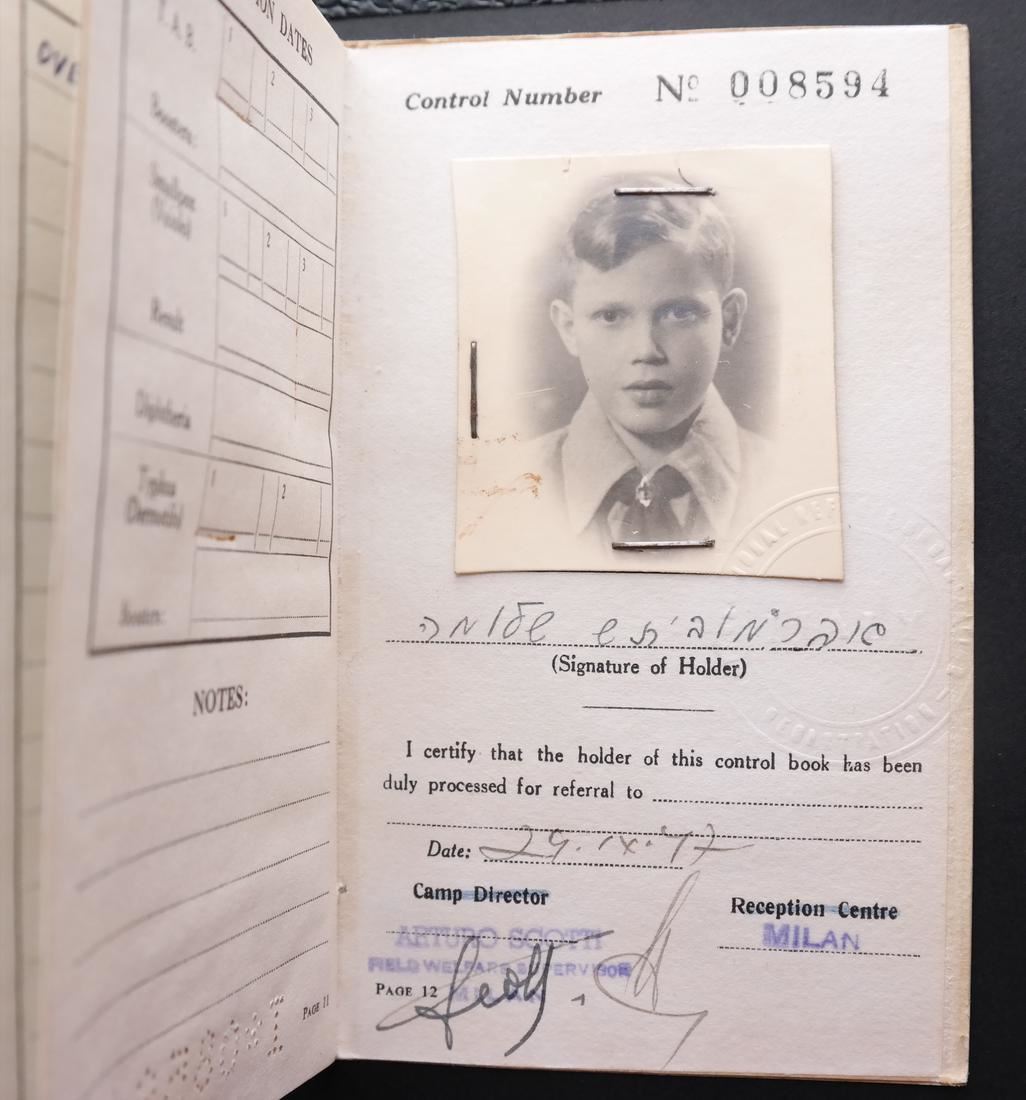 OVE
ION DATES
T. A. B.
1 2 3
Boosters:
Smallpox
(Vaccin)
1 2 3
Result
Diphtheria
Typhus
1 2
Boosters:
NOTES:
PAGE 11
Control Number Nº 008594
אברמוביתש שלומה
(Signature of Holder)
I certify that the holder of this control book has been
duly processed for referral to
Date: 29.IX.47
Camp Director
Reception Centre
ARTURO SCOTTI
MILAN
FIELD WELFARE SUPERVISOR
PAGE 12 MILAN
Scotti